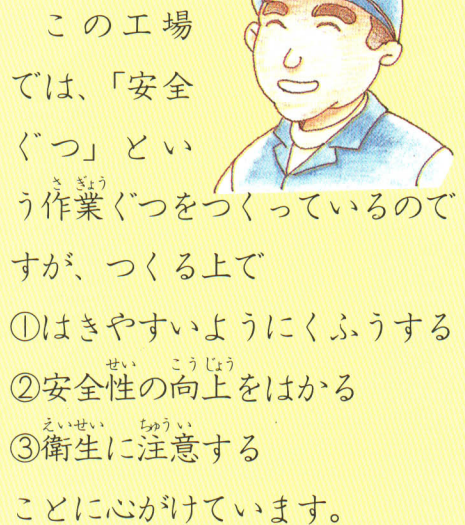 この工場
では、「安全
ぐつ」とい
う作業ぐつをつくっているので
すが、つくる上で
①はきやすいようにくふうする
②安全性の向上をはかる
③衛生に注意する
ことに心がけています。